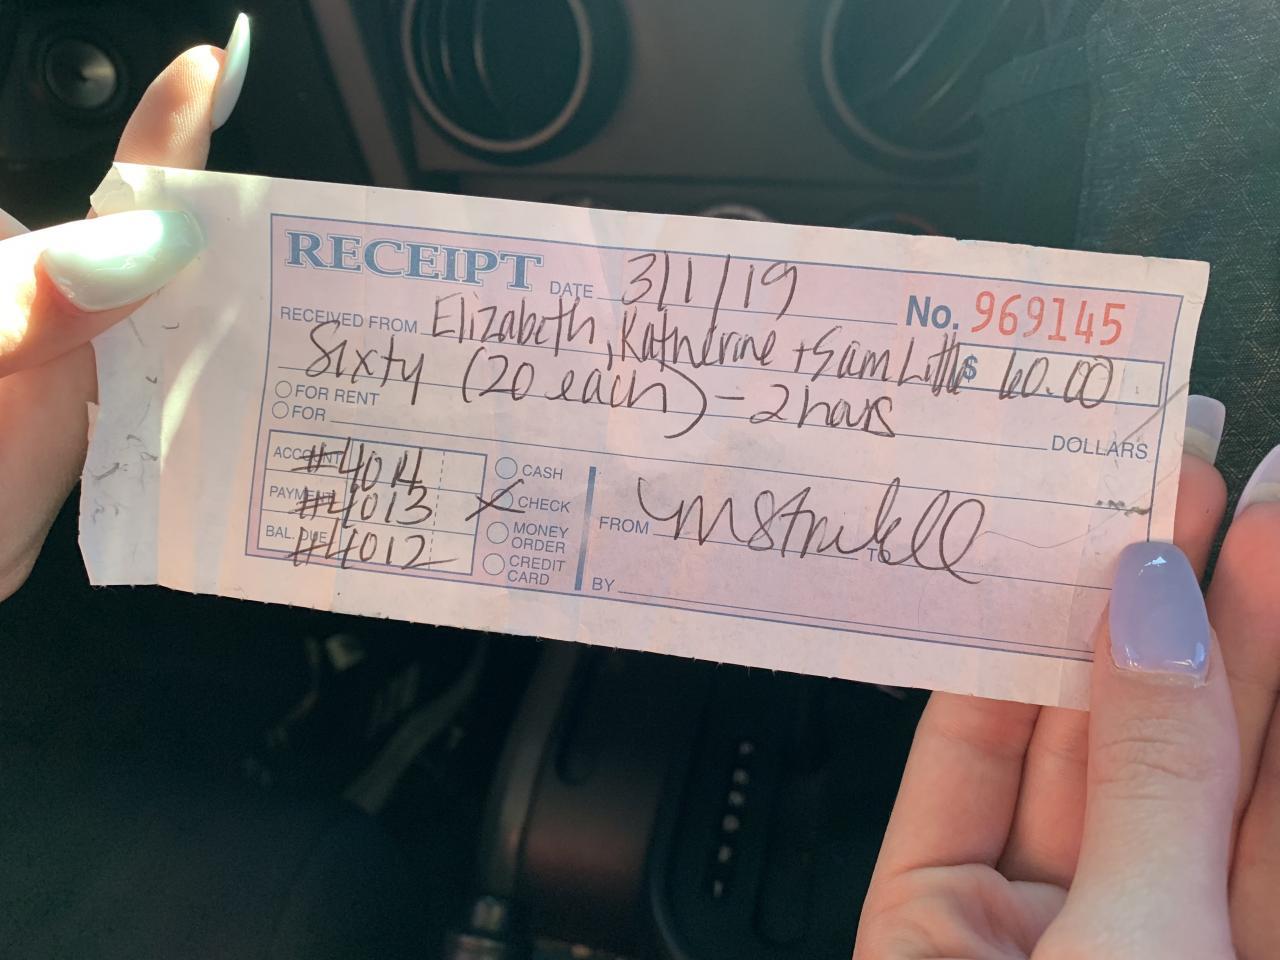 RECEIPT DATE 3/1/19 No. 969145
RECEIVED FROM Elizabeth, Katherine + Sam Little $ 60.00
Sixty (20 each) - 2 hours DOLLARS
FOR RENT
FOR
ACCOUNT #4014
PAYMENT #4013
BAL. DUE #4012
CASH
CHECK
MONEY ORDER
CREDIT CARD
FROM TO
BY